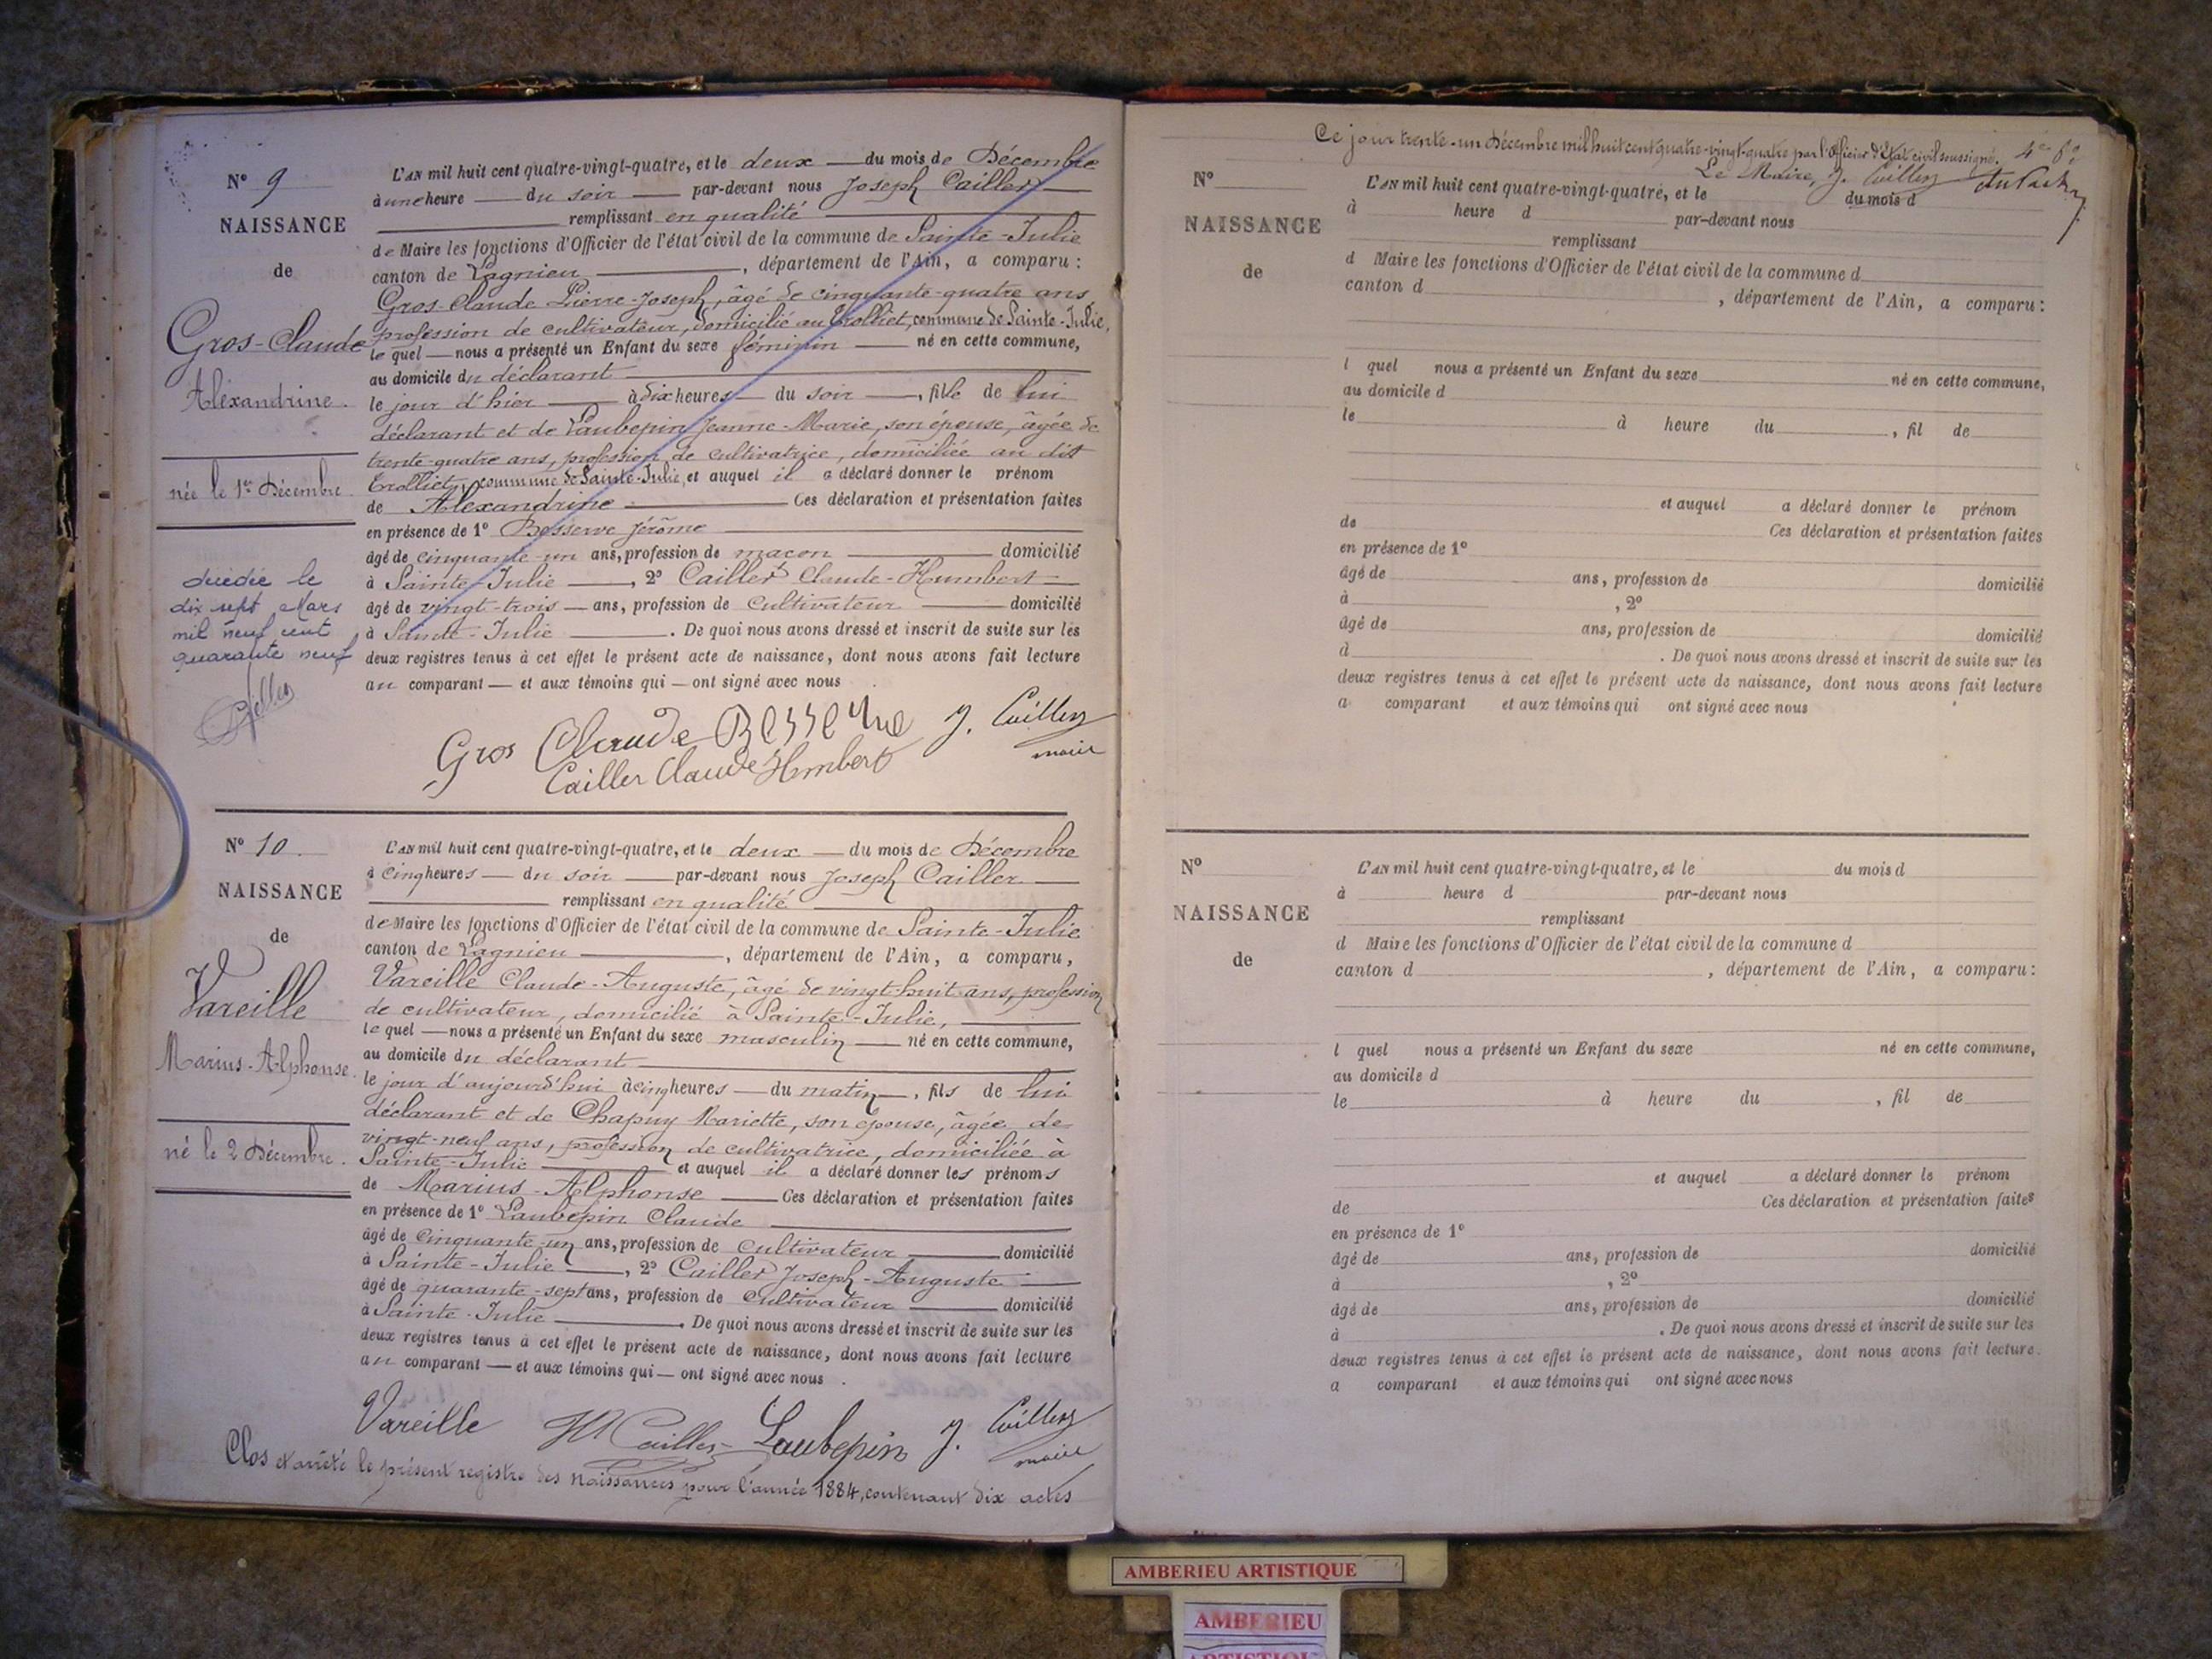 N° 9
NAISSANCE
de
Gros-Claude
Alexandrine.
née le 1er Décembre
décédée le
dix sept Mars
mil neuf cent
quarante neuf
L'AN mil huit cent quatre-vingt-quatre, et le deux — du mois de Décembre
à une heure — du soir — par-devant nous Joseph Cailler —
remplissant en qualité
de Maire les fonctions d'Officier de l'état civil de la commune de Sainte-Julie
canton de Lagnieu —, département de l'Ain, a comparu :
Gros-Claude Pierre-Joseph, âgé de cinquante-quatre ans,
profession de cultivateur, domicilié au Trolliet, commune de Sainte-Julie,
le quel — nous a présenté un Enfant du sexe féminin — né en cette commune,
au domicile du déclarant
le jour d'hier — à dix heures — du soir —, fille de lui
déclarant et de Laubepin Jeanne-Marie, son épouse, âgée de
trente-quatre ans, profession de cultivatrice, domiciliée au dit
Trolliet, commune de Sainte-Julie, et auquel il a déclaré donner le prénom
de Alexandrine — Ces déclaration et présentation faites
en présence de 1° Besserve Jérôme
âgé de cinquante-un ans, profession de maçon — domicilié
à Sainte-Julie —, 2° Cailler Claude-Humbert —
âgé de vingt-trois — ans, profession de cultivateur — domicilié
à Sainte-Julie —. De quoi nous avons dressé et inscrit de suite sur les
deux registres tenus à cet effet le présent acte de naissance, dont nous avons fait lecture
au comparant — et aux témoins qui — ont signé avec nous.
Gros Claude Besserve J. Cailler
Cailler Claude Humbert maire
N° 10.
NAISSANCE
de
Vareille
Marius-Alphonse.
né le 2 Décembre.
L'AN mil huit cent quatre-vingt-quatre, et le deux — du mois de Décembre
à cinq heures — du soir — par-devant nous Joseph Cailler —
remplissant en qualité
de Maire les fonctions d'Officier de l'état civil de la commune de Sainte-Julie
canton de Lagnieu —, département de l'Ain, a comparu,
Vareille Claude-Auguste, âgé de vingt-huit ans, profession
de cultivateur, domicilié à Sainte-Julie, —
le quel — nous a présenté un Enfant du sexe masculin — né en cette commune,
au domicile du déclarant
le jour d'aujourd'hui à cinq heures — du matin —, fils de lui
déclarant et de Chapuy Mariette, son épouse, âgée de
vingt-neuf ans, profession de cultivatrice, domiciliée à
Sainte-Julie — et auquel il a déclaré donner les prénoms
de Marius-Alphonse — Ces déclaration et présentation faites
en présence de 1° Laubepin Claude
âgé de cinquante-un ans, profession de cultivateur — domicilié
à Sainte-Julie —, 2° Cailler Joseph-Auguste —
âgé de quarante-sept ans, profession de cultivateur — domicilié
à Sainte-Julie —. De quoi nous avons dressé et inscrit de suite sur les
deux registres tenus à cet effet le présent acte de naissance, dont nous avons fait lecture
au comparant — et aux témoins qui — ont signé avec nous.
Vareille Cailler Laubepin J. Cailler
maire
Clos et arrêté le présent registre des Naissances pour l'année 1884, contenant dix actes
Ce jour trente-un Décembre mil huit cent quatre-vingt-quatre par l'Officier d'Etat civil soussigné.
Le Maire, J. Cailler
N°
NAISSANCE
de
L'AN mil huit cent quatre-vingt-quatre, et le du mois d
à heure d par-devant nous
remplissant
d Maire les fonctions d'Officier de l'état civil de la commune d
canton d , département de l'Ain, a comparu :
l quel nous a présenté un Enfant du sexe né en cette commune,
au domicile d
le à heure du , fil de
et auquel a déclaré donner le prénom
de Ces déclaration et présentation faites
en présence de 1°
âgé de ans, profession de domicilié
à , 2°
âgé de ans, profession de domicilié
d . De quoi nous avons dressé et inscrit de suite sur les
deux registres tenus à cet effet le présent acte de naissance, dont nous avons fait lecture
a comparant et aux témoins qui ont signé avec nous
N°
NAISSANCE
de
L'AN mil huit cent quatre-vingt-quatre, et le du mois d
à heure d par-devant nous
remplissant
d Maire les fonctions d'Officier de l'état civil de la commune d
canton d , département de l'Ain, a comparu :
l quel nous a présenté un Enfant du sexe né en cette commune,
au domicile d
le à heure du , fil de
et auquel a déclaré donner le prénom
de Ces déclaration et présentation faites
en présence de 1°
âgé de ans, profession de domicilié
à , 2°
âgé de ans, profession de domicilié
à . De quoi nous avons dressé et inscrit de suite sur les
deux registres tenus à cet effet le présent acte de naissance, dont nous avons fait lecture
a comparant et aux témoins qui ont signé avec nous
AMBERIEU ARTISTIQUE
AMBERIEU
ARTISTIQUE